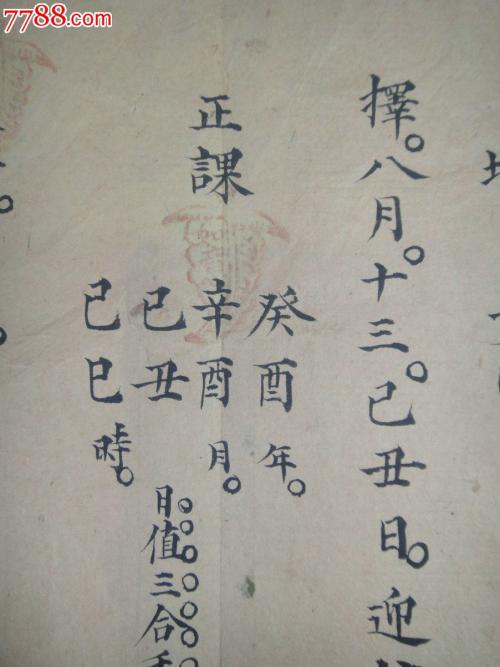 7788.com
擇。八月。十三。己丑日。迎
正課
癸酉年。
辛酉月。
己丑日。值三合
己巳時。